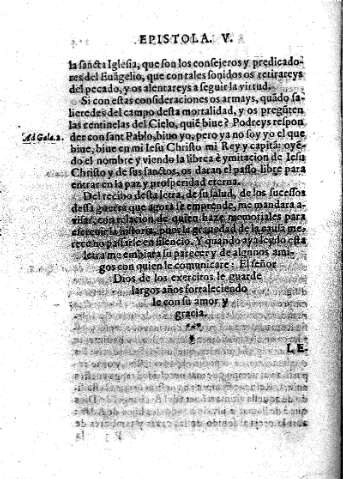 EPISTOLA. V.
la sancta Iglesia, que son los consejeros y predicado-
res del Euãgelio, que con tales sonidos os retirareys
del pecado, y os alentareys a seguir la virtud.
Si con estas consideraciones os armays, quãdo sa-
lieredes del campo desta mortalidad, y os pregũten
las centinelas del Cielo, quiẽ biue? Podreys respon
Ad Gala. 2.
der con sant Pablo, biuo yo, pero ya no soy yo el que
biue, biue en mi Iesu Christo mi Rey y capitã: oyẽ-
do el nombre y viendo la librea è ymitacion de Iesu
Christo y de sus sanctos, os daran el passo libre para
entrar en la paz y prosperidad eterna.
Del recibo desta letra, de su salud, de los sucessos
desta guerra que agora se emprende, me mandara a-
uisar, con relacion de quien haze memoriales para
escreuir la historia, pues la grauedad de la causa me-
rece no passarse en silencio. Y quando aya leydo esta
letra me embiara su parecer y de algunos ami-
gos con quien le comunicare: El señor
Dios de los exercitos le guarde
largos años fortaleciendo
le con su amor y
gracia.
LE-